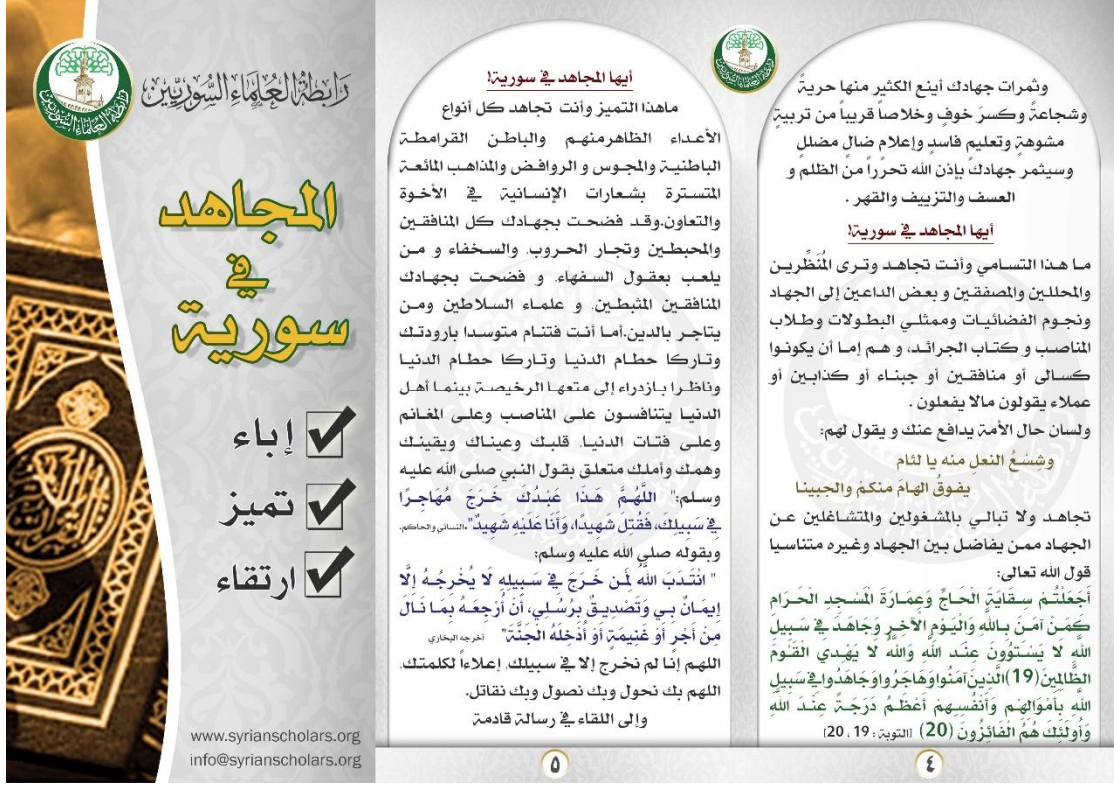 وثمرات جهادك أينع الكثير منها حريةً
وشجاعةً وكسرَ خوفٍ وخلاصاً قريباً من تربيةٍ
مشوهةٍ وتعليم فاسدٍ وإعلام ضالٍ مضللٍ
وسيثمر جهادكَ بإذن الله تحرّراً من الظلم و
العسف والتزييف والقهر .
أيها المجاهد في سورية!
ما هذا التسامي وأنت تجاهد وترى المُنَظِّرين
والمحللين والمصفقين و بعض الداعين إلى الجهاد
ونجوم الفضائيات وممثلي البطولات وطلاب
المناصب و كتاب الجرائد، و هم إما أن يكونوا
كسالى أو منافقين أو جبناء أو كذابين أو
عملاء يقولون مالا يفعلون .
ولسان حال الأمة يدافع عنك و يقول لهم:
وشِسْعُ النعلِ منه يا لئام
يفوقُ الهامَ منكمْ والجبينا
تجاهد ولا تبالي بالمشغولين والمتشاغلين عن
الجهاد ممن يفاضل بين الجهاد وغيره متناسيا
قول الله تعالى:
أَجَعَلْتُمْ سِقَايَةَ الْحَاجِّ وَعِمَارَةَ الْمَسْجِدِ الْحَرَامِ
كَمَنْ آمَنَ بِاللَّهِ وَالْيَوْمِ الْآخِرِ وَجَاهَدَ فِي سَبِيلِ
اللَّهِ لَا يَسْتَوُونَ عِنْدَ اللَّهِ وَاللَّهُ لَا يَهْدِي الْقَوْمَ
الظَّالِمِينَ (19) الَّذِينَ آمَنُوا وَهَاجَرُوا وَجَاهَدُوا فِي سَبِيلِ
اللَّهِ بِأَمْوَالِهِمْ وَأَنْفُسِهِمْ أَعْظَمُ دَرَجَةً عِنْدَ اللَّهِ
وَأُولَئِكَ هُمُ الْفَائِزُونَ (20) [التوبة : 19 ، 20]
٤
أيها المجاهد في سورية!
ماهذا التميز وأنت تجاهد كل أنواع
الأعداء الظاهرمنهم والباطن القرامطة
الباطنية والمجوس و الروافض والمذاهب المائعة
المتسترة بشعارات الإنسانية في الأخوة
والتعاون.وقد فضحت بجهادك كل المنافقين
والمحبطين وتجار الحروب. والسخفاء و من
يلعب بعقول السفهاء. و فضحت بجهادك
المنافقين المثبطين. و علماء السلاطين ومن
يتاجر بالدين.أما أنت فتنام متوسدا بارودتك
وتاركا حطام الدنيا وتاركا حطام الدنيا
وناظرا بازدراء إلى متعها الرخيصة بينما أهل
الدنيا يتنافسون على المناصب وعلى المغانم
وعلى فتات الدنيا. قلبك وعيناك ويقينك
وهمك وأملك متعلق بقول النبي صلى الله عليه
وسلم:" اللَّهُمَّ هَذَا عَبْدُكَ خَرَجَ مُهَاجِرًا
فِي سَبِيلِكَ، فَقُتِلَ شَهِيدًا، وَأَنَا عَلَيْهِ شَهِيدٌ" .النسائي والحاكم.
وبقوله صلى الله عليه وسلم:
" انْتَدَبَ اللَّهُ لِمَنْ خَرَجَ فِي سَبِيلِهِ لَا يُخْرِجُهُ إِلَّا
إِيمَانٌ بِي وَتَصْدِيقٌ بِرُسُلِي، أَنْ أَرْجِعَهُ بِمَا نَالَ
مِنْ أَجْرٍ أَوْ غَنِيمَةٍ أَوْ أُدْخِلَهُ الجَنَّةَ" أخرجه البخاري
اللهم إنا لم نخرج إلا في سبيلك. إعلاءاً لكلمتك.
اللهم بك نحول وبك نصول وبك نقاتل.
وإلى اللقاء في رسالة قادمة
٥
رَابِطَةُ العُلَمَاءِ السُّورِيِّينَ
المجاهد
في
سورية
إباء
تميز
ارتقاء
www.syrianscholars.org
info@syrianscholars.org